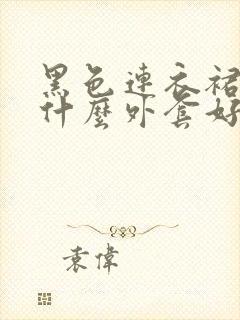 黑色連衣裙
什麼外套好
袁偉